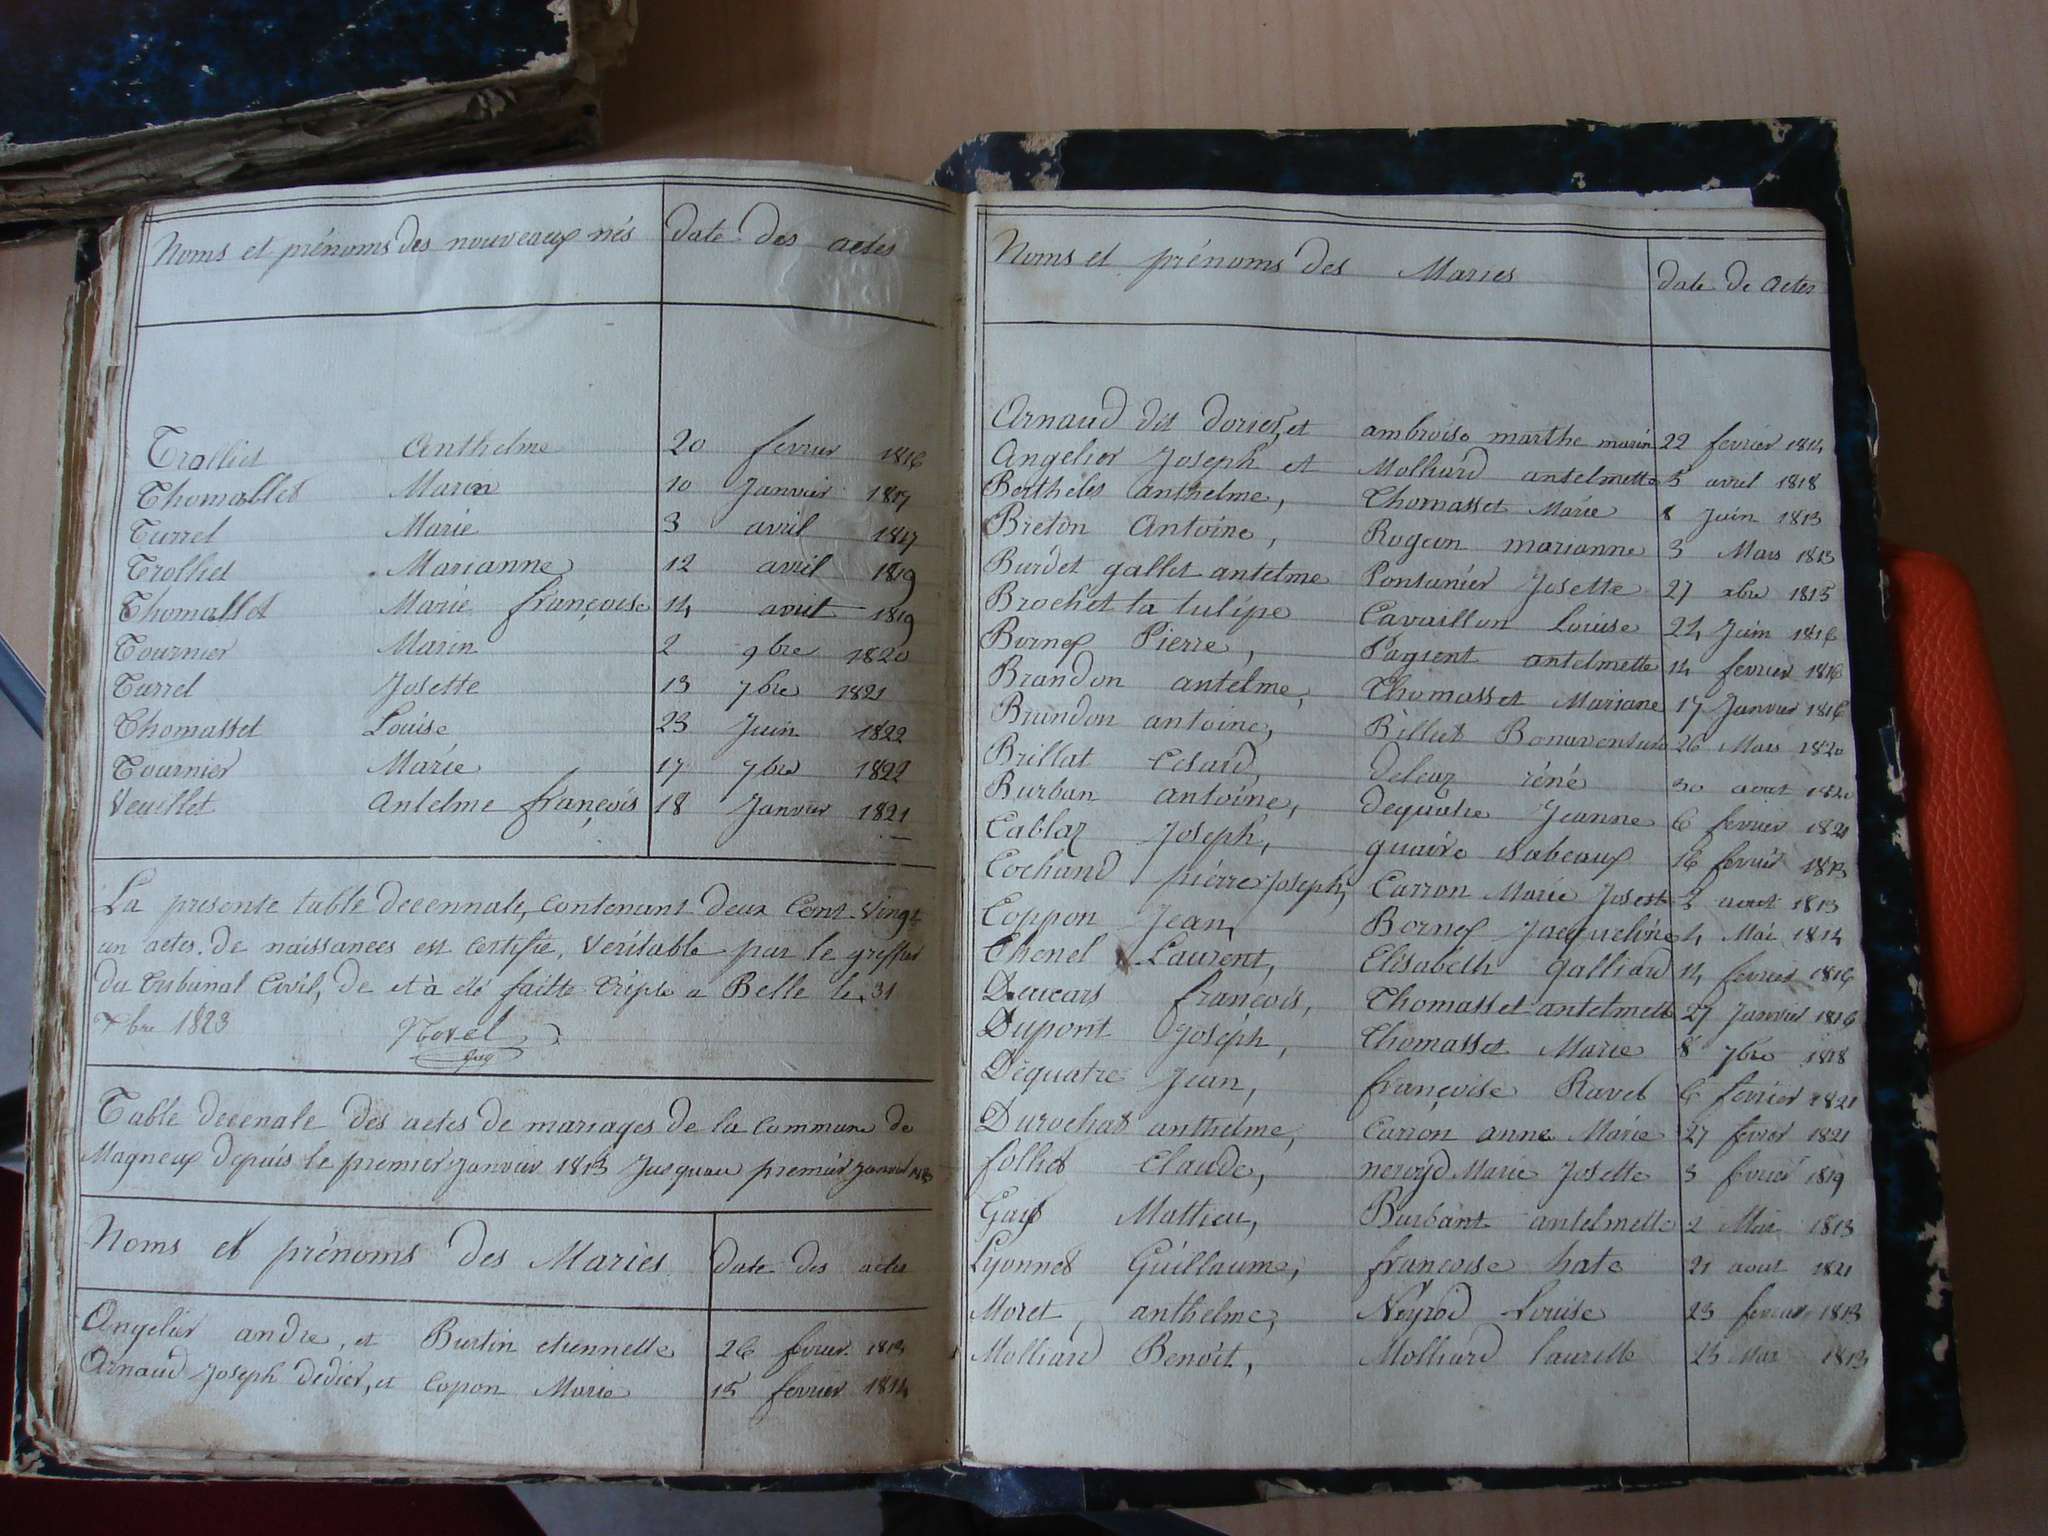 Noms et prénoms des nouveaux nés date des actes
Trolliet Anthelme 20 fevrier 1816
Thomasset Marin 10 Janvier 1817
Turrel Marie 3 avril 1817
Trolliet Marianne 12 avril 1819
Thomasset Marie françoise 14 avril 1819
Tournier Marin 2 9bre 1820
Turrel Josette 13 7bre 1821
Thomasset Louise 23 Juin 1822
Tournier Marie 17 7bre 1822
Veuillet Antelme françois 18 Janvier 1821
La presente table decennale, contenant deux Cent vingt
un actes de naissances est certifie, veritable par le greffier
du tribunal Civil, de et à été faitte triple a Belle le 31
bre 1823 Novel
Table decenale des actes de mariages de la Commune de
Magneux depuis le premier Janvier 1813 Jusquau premier Janvier
Noms et prénoms des Mariés date des actes
Angelier andre, et Burlin etiennette 26 fevrier 1813
Arnaud Joseph dedier, et Copon Marie 15 fevrier 1814
Noms et prénoms des Maries date de actes
Arnaud dit dorier, et ambroise marthe marin 22 fevrier 1814
Angelier Joseph et Molliard antelmette 5 avril 1818
Berthelet anthelme, Thomasset Marie 8 Juin 1813
Breton Antoine, Rogeon marianne 3 Mars 1813
Burdet gallet antelme Pontanier Josette 27 xbre 1815
Brochet la tulipe Cavaillon Louise 24 Juin 1816
Bornex Pierre, antelmette 14 fevrier 1816
Brandon antelme, Thomasset Mariane 17 Janvier 1816
Brandon antoine, Billiet Bonaventure 26 Mars 1820
Brillat Cesard, deleaz réné 30 aout 1820
Burban antoine, dequatre Jeanne 6 fevrier 1821
Cablaz Joseph, isabeaux 16 fevrier 1813
Cochand pierre Joseph, Carron Marie Josette 3 aout 1813
Coppon Jean, Bornex Jacqueline 4 Mai 1814
Chenel Laurent, Elisabeth galliard 14 fevrier 1816
françois, Thomasset antelmette 27 Janvier 1816
Dupont Joseph, Thomasset Marie 8 7bre 1818
Dequatre Jean, françoise Ravet 6 fevrier 1821
Durochat anthelme, Carron anne Marie 27 fevrier 1821
folliet Claude, Marie Josette 3 fevrier 1819
Gay Mathieu, Burbant antelmette 2 Mai 1813
Lyonnet Guillaume, francoise hate 21 aout 1821
Moret anthelme, Neyrod Louise 23 fevrier 1813
Molliard Benoit, Molliard laurette 23 Mar 1813